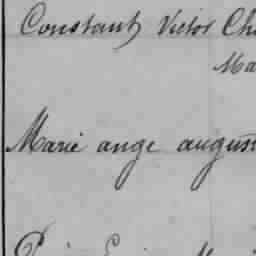 Constant Victor Ch
Ma
Marie ange august